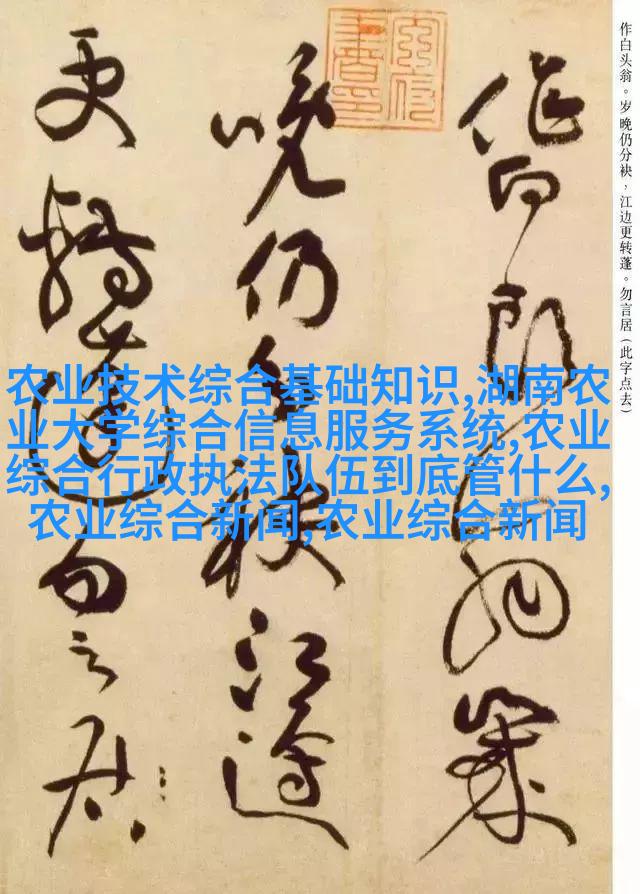 作白头翁。岁晚仍分袂，江边更转蓬。勿言居（此字点去）
作白頭翁歲
晚仍分袂江邊
更轉蓬勿言居
农业技术综合基础知识,湖南农
业大学综合信息服务系统,农业
综合行政执法队伍到底管什么,
农业综合新闻,农业综合新闻